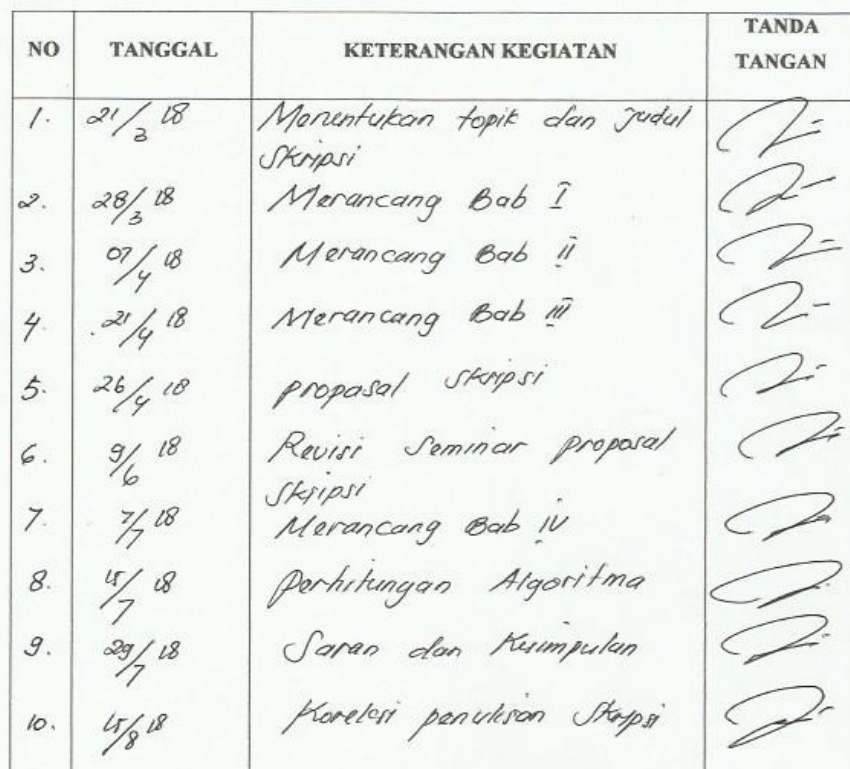 NO TANGGAL KETERANGAN KEGIATAN TANDA TANGAN
1. 21/3 18 Menentukan topik dan Judul
Skripsi
2. 28/3 18 Merancang Bab I
3. 07/4 18 Merancang Bab II
4. 21/4 18 Merancang Bab III
5. 26/4 18 proposal skripsi
6. 9/6 18 Revisi Seminar proposal
Skripsi
7. 7/7 18 Merancang Bab IV
8. 15/7 18 Perhitungan Algoritma
9. 29/7 18 Saran dan Kesimpulan
10. 15/8 18 Koreksi penulisan Skripsi